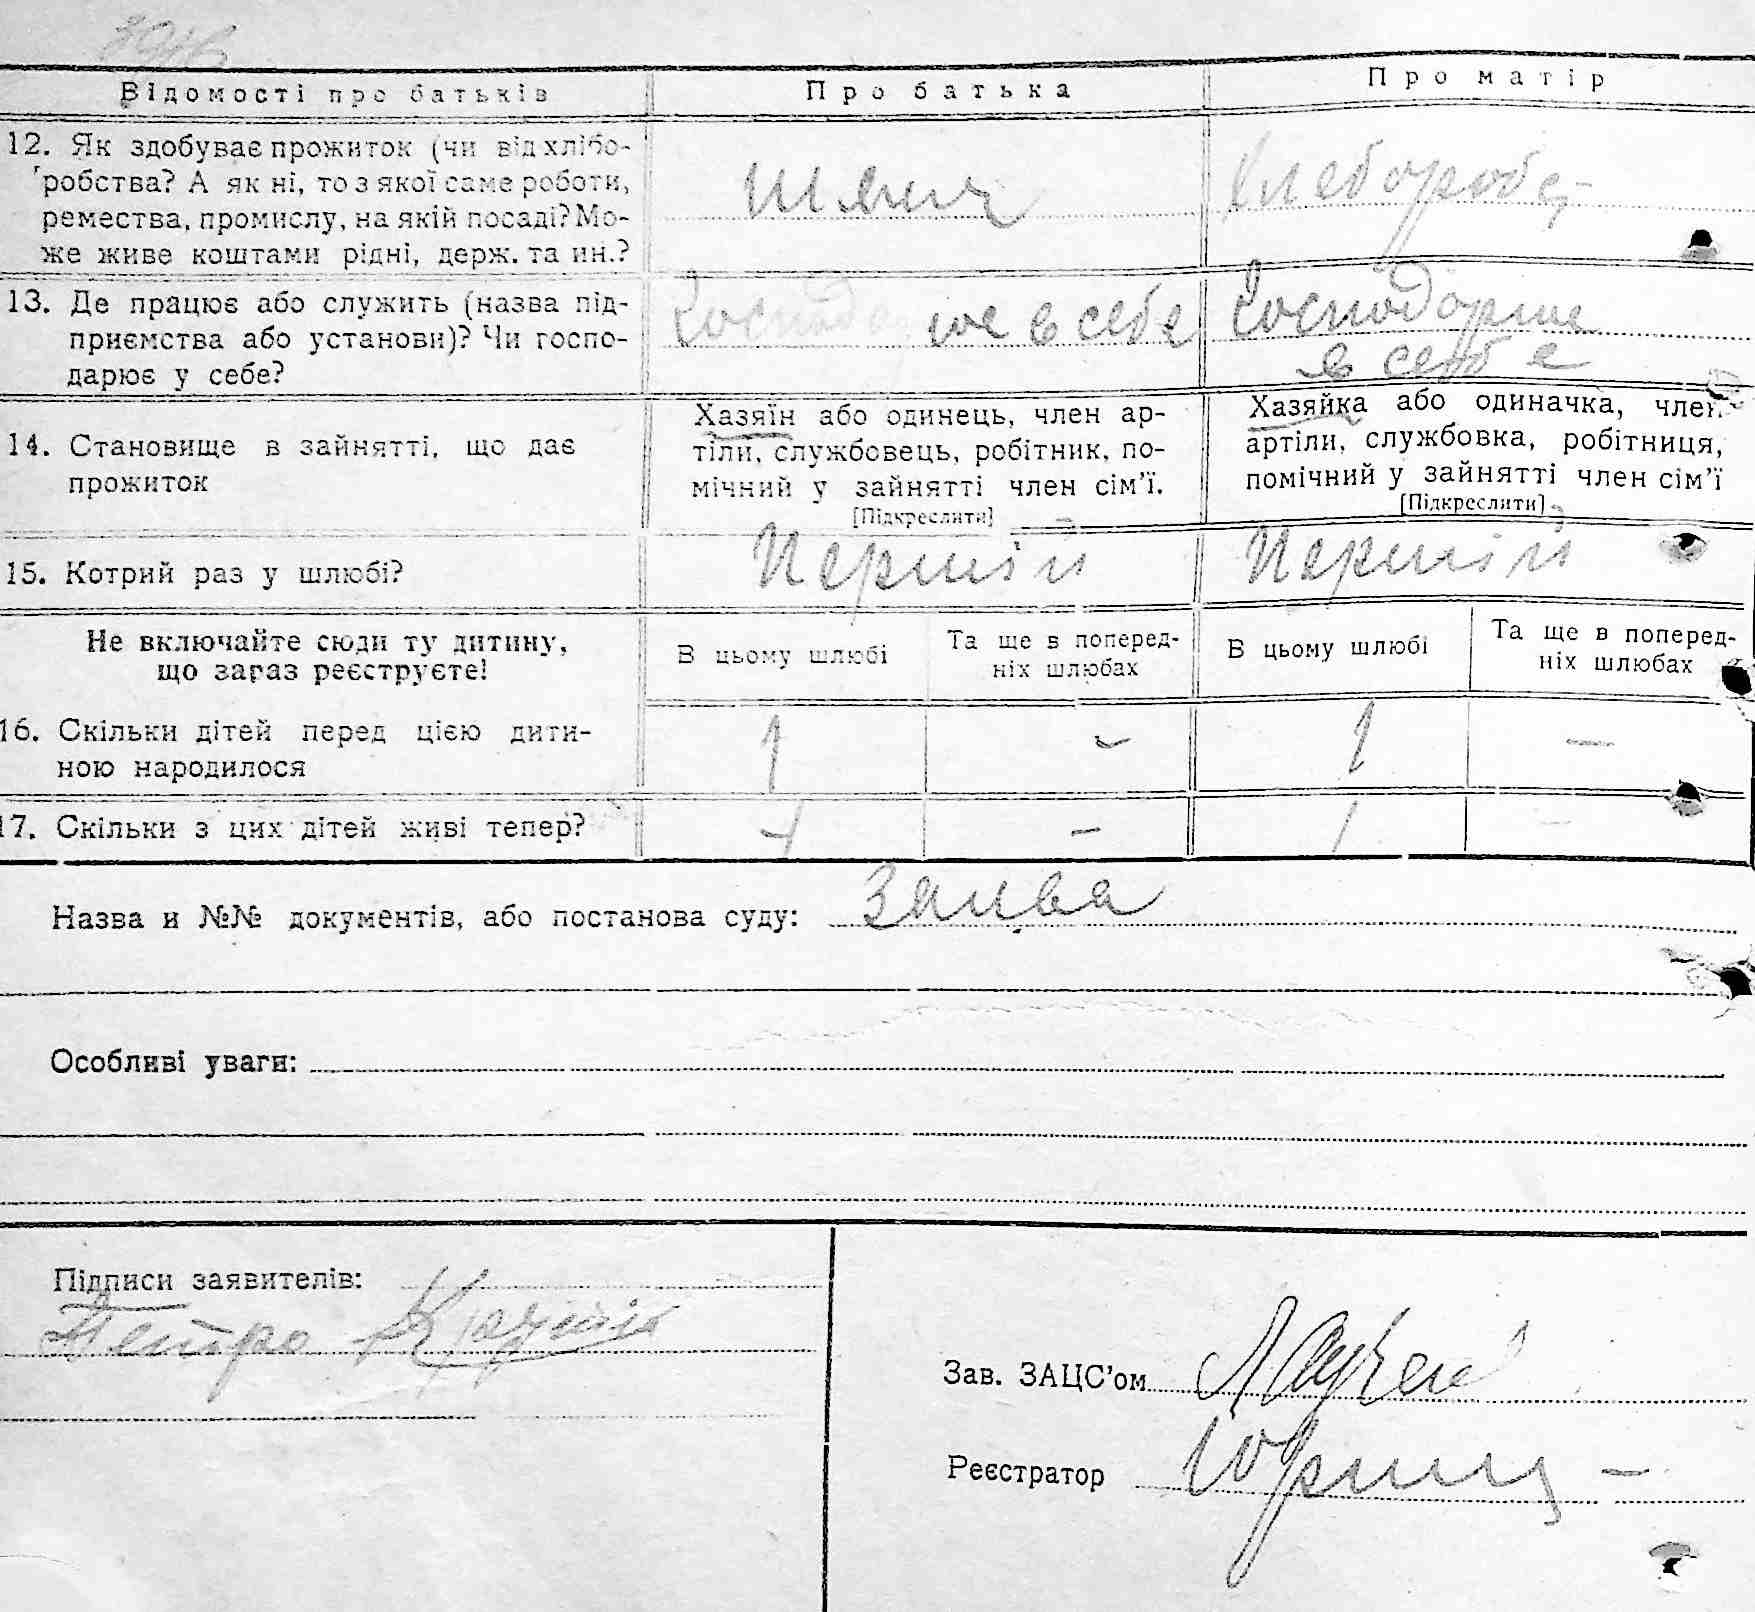 Відомості про батьків
Про батька
Про матір
12. Як здобуває прожиток (чи від хлібо-
робства? А як ні, то з якої саме роботи,
ремества, промислу, на якій посаді? Мо-
же живе коштами рідні, держ. та ин.?
хлебороб
13. Де працює або служить (назва під-
приємства або установи)? Чи госпо-
дарює у себе?
в себе
Господорює
в себе
14. Становище в зайнятті, що дає
прожиток
Хазяїн або одинець, член ар-
тіли, службовець, робітник, по-
мічний у зайнятті член сім'ї.
[Підкреслити]
Хазяйка або одиначка, член
артіли, службовка, робітниця,
помічний у зайнятті член сім'ї
[Підкреслити]
15. Котрий раз у шлюбі?
Першій
Першій
Не включайте сюди ту дитину,
що зараз реєструєте!
В цьому шлюбі
Та ще в поперед-
ніх шлюбах
В цьому шлюбі
Та ще в поперед-
ніх шлюбах
16. Скільки дітей перед цією дити-
ною народилося
1 - 1 —
17. Скільки з цих дітей живі тепер?
1 — 1 —
Назва и №№ документів, або постанова суду:
Заява
Особливі уваги:
Підписи заявителів:
Петро
Зав. ЗАЦС'ом
Реєстратор